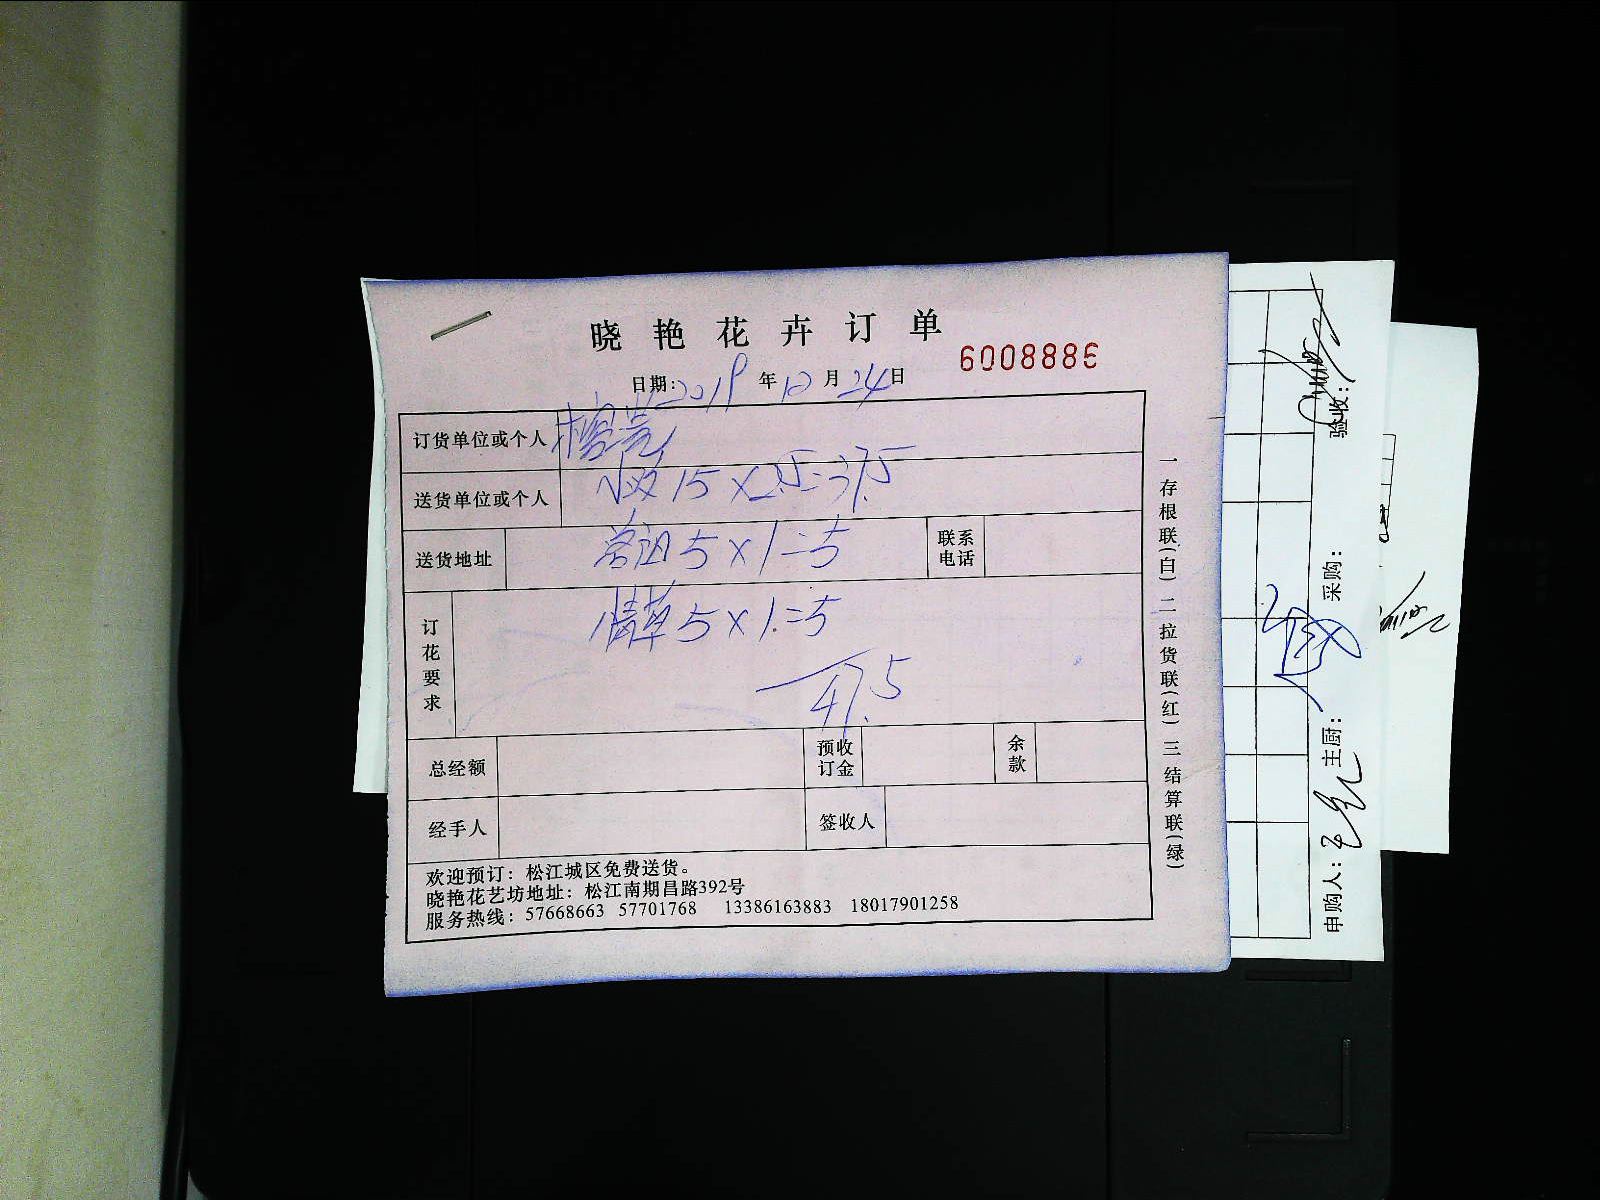 晓艳花卉订单
6008886
日期:2019年10月24日
订货单位或个人
送货单位或个人 小玫 15×2.5=37.5
送货地址 5×1=5 联系电话
订花要求 情草 5×1=5
47.5
总经额 预收订金 余款
经手人 签收人
欢迎预订：松江城区免费送货。
晓艳花艺坊地址：松江南期昌路392号
服务热线：57668663 57701768 13386163883 18017901258
一存根联(白) 二拉货联(红) 三结算联(绿)
申购人： 主厨： 采购： 验收：